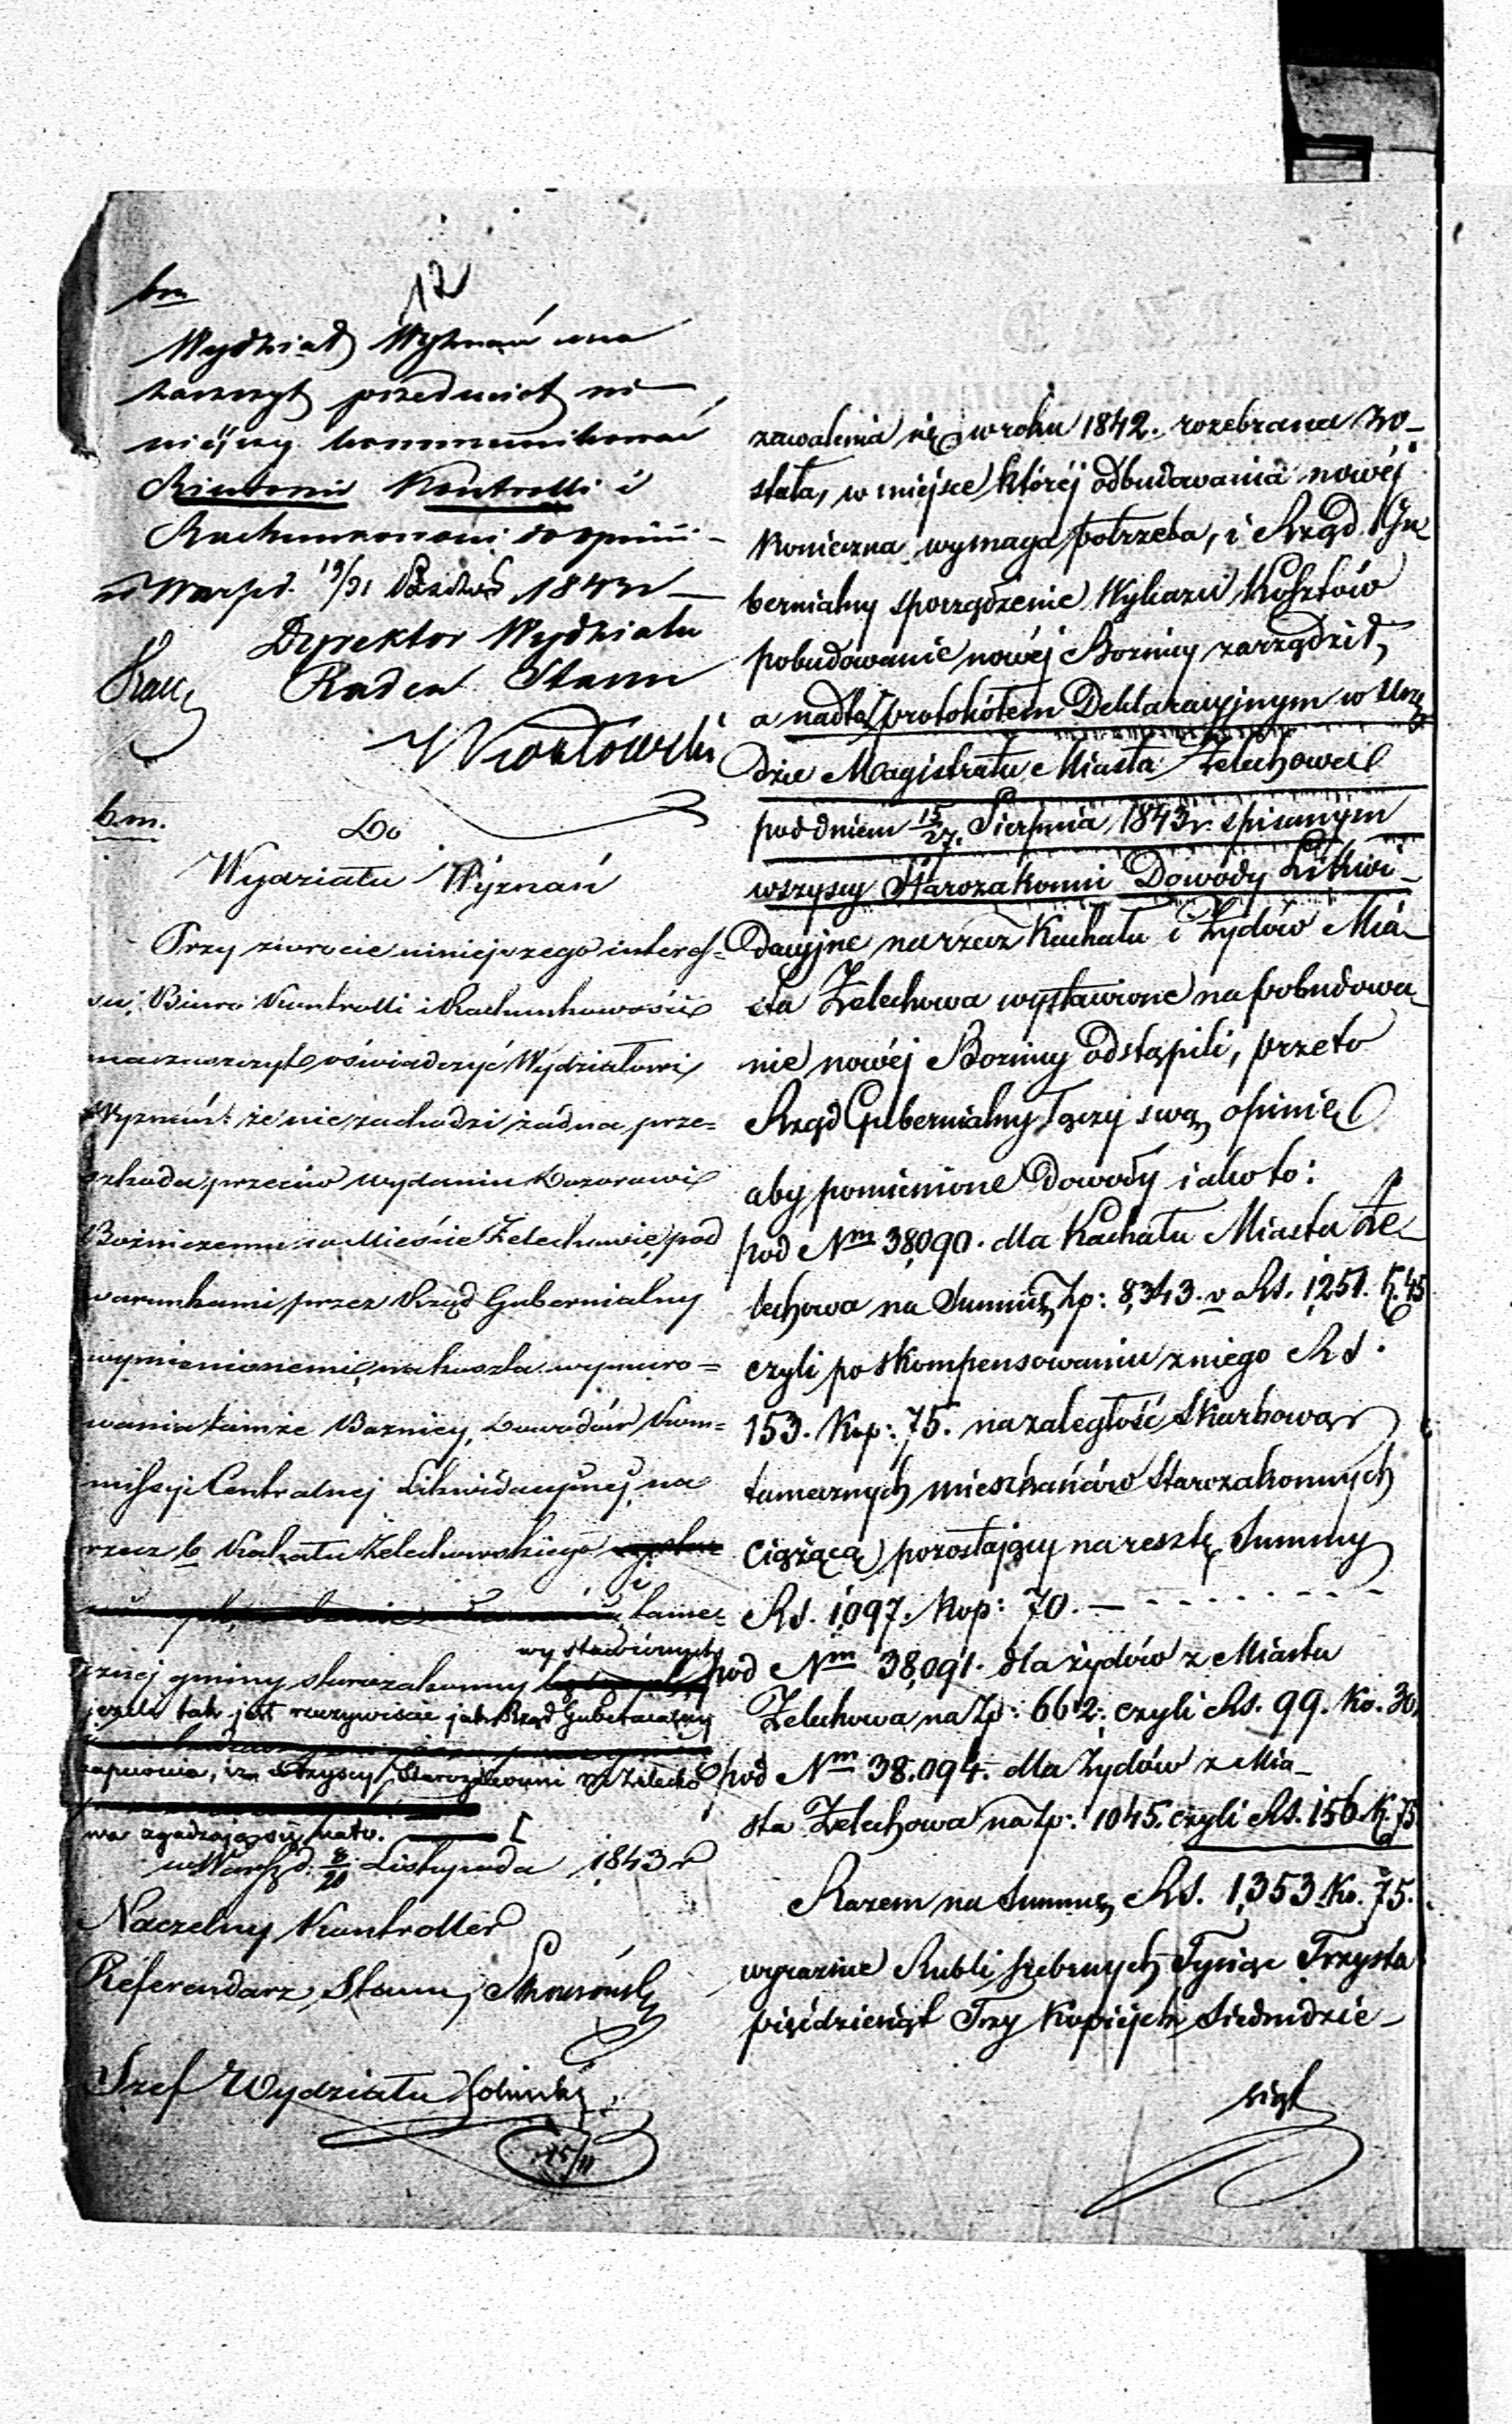 bm
12
Wydział Wyznań ma
zaszczyt przedmiot ni-
niejszy kommunikować
Kontrolli i
do opinii
w Warsz. d. 19/31 1843 r
Dyrektor Wydziału
Radca Stanu
b.m.
Do
Wydziału Wyznań
Przy zwrocie niniejszego interes-
su, Biuro Kontrolli i Rachunkowości
ma zaszczyt oświadczyć Wydziałowi
Wyznań: że nie zachodzi żadna prze=
szkoda, przeciw wydaniu Dozorowi
Bożniczemu w Mieście Żelechowie, pod
warunkami, przez Rząd Gubernialny
wymienionemi, na koszta wymuro=
wania tamże Bożnicy, Dowodów Kom=
missyi Centralnej Likwidacyjnej, na
rzecz b. Kachału Żelechowskiego
i tame=
wystawionych
cznej gminy starozakonny
jeżeli tak jest rzeczywiście jak Rząd Gubernialny
zapewnia, że wszyscy Starozakonni w Żelecho
wie zgadzają się na to.
w Warsz. d. 8/20 Listopada 1843 r
Naczelny Kontroller
Referendarz Stanu
Szef Wydziału
25/11
zawalenia się w roku 1842. rozebrana zo-
stała, w miejsce której odbudowania nowéj
konieczna wymaga potrzeba, i Rząd Gu
bernialny sporządzenie Wykazu Kosztów
pobudowanie nowéj Bożnicy zarządził,
a nadto protokółem Deklaracyjnym w Urzę
dzie Magistratu Miasta Żelechowa
pod dniem 15/27. Sierpnia 1843 r. spisanym
wszyscy Starozakonni Dowody Likwi-
dacyjne na rzecz Kachału i Żydów Mia-
sta Żelechowa wystawione na pobudowa-
nie nowéj Bożnicy odstąpili, przeto
Rząd Gubernialny łączy swą opinię
aby pomienione Dowody jako to:
pod Nm 38,090. dla Kachału Miasta Że-
lechowa na Summę Zp: 8,343. v Rs. 1,251. K. 45
czyli po skompensowaniu z niego Rs.
153. Kop: 75. na zaległość Skarbową
tamecznych mieszkańców Starozakonnych
ciążącą pozostający na resztę Summy
Rs. 1,097. Kop: 70. —
pod Nm 38,091. dla żydów z Miasta
Żelechowa na Zp: 662. czyli Rs. 99. Ko. 30
pod Nm 38.094. dla Żydów z Mia-
sta Żelechowa na Zp: 1045. czyli Rs. 156. K. 75
Razem na Summę Rs. 1,353 Ko. 75.
wyraźnie Rubli srebrnych Tysiąc Trzysta
pięćdziesiąt Trzy Kopiejek Siedmdzie-
siąt